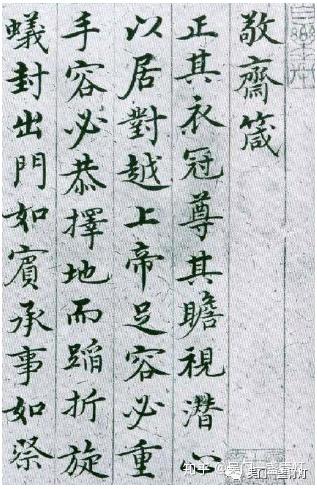 敬齋箴
正其衣冠尊其瞻視潛心
以居對越上帝足容必重
手容必恭擇地而蹈折旋
蟻封出門如賓承事如祭
知乎